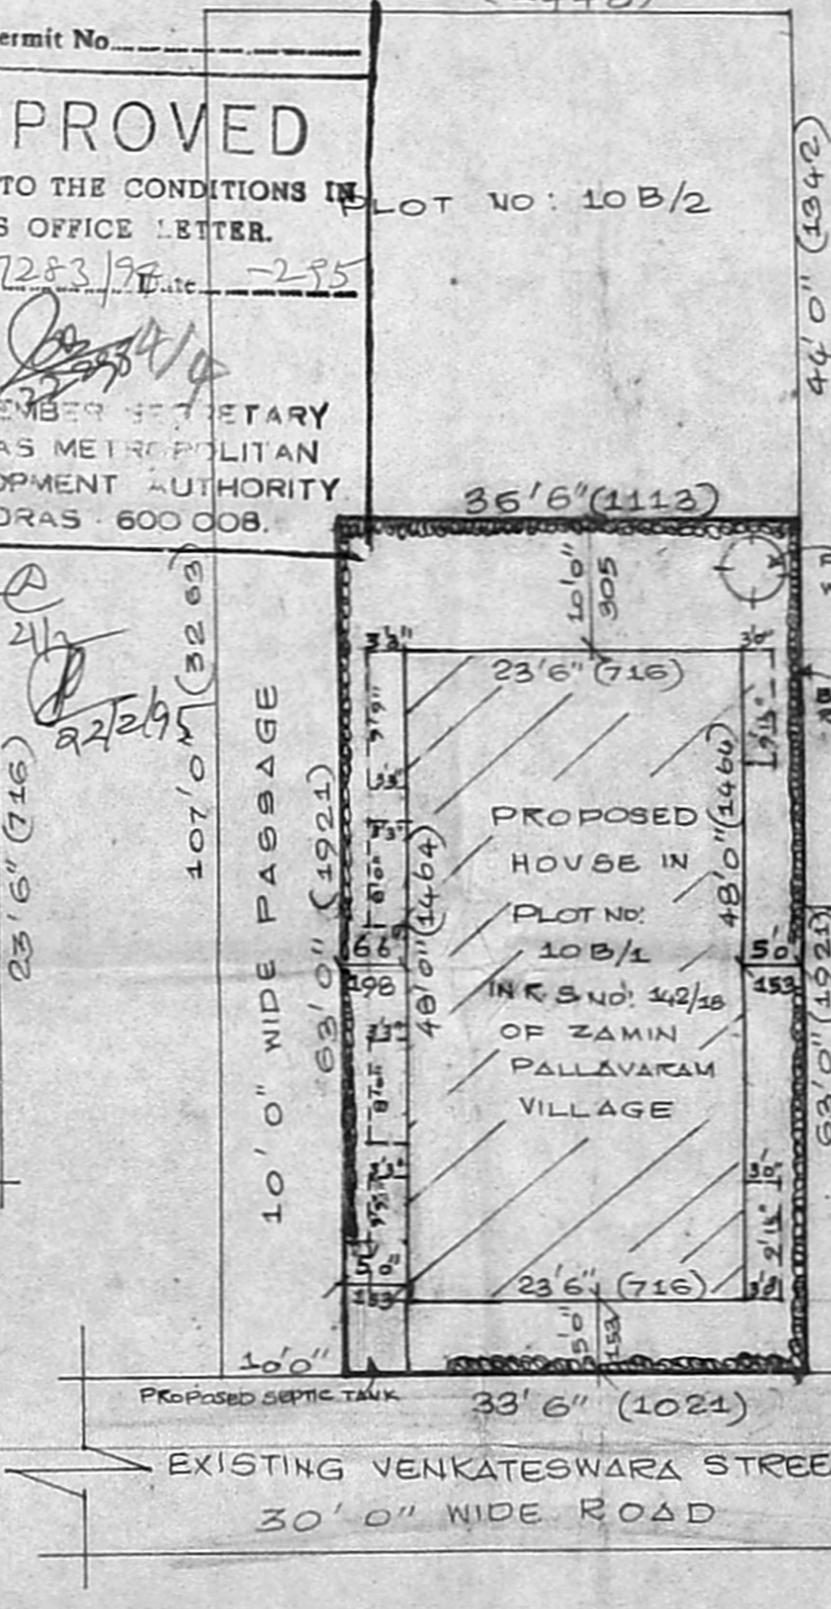 ermit No
PROVED
TO THE CONDITIONS IN
S OFFICE LETTER.
Date -295
EMBER SECRETARY
AS METROPOLITAN
OPMENT AUTHORITY
DRAS - 600 008.
PLOT NO: 10B/2
44'0" (1342)
36'6"(1113)
21/2
22/2/95
107'0" (3263)
23'6" (716)
10'0" WIDE PASSAGE
63'0" (1921)
10'0"
305
3'3"
3'0"
23'6" (716)
9'9"
3'3"
3'3"
8'0"
48'0"(1464)
48'0"(1464)
PROPOSED
HOUSE IN
PLOT NO:
10B/1
IN R.S NO: 142/18
OF ZAMIN
PALLAVARAM
VILLAGE
6'6"
198
5'0
153
63'0" (1921)
3'3"
8'0"
3'3"
3'0"
5'0"
153
23'6" (716)
3'0"
5'0"
153
10'0"
PROPOSED SEPTIC TANK
33'6" (1021)
EXISTING VENKATESWARA STREE
30'0" WIDE ROAD